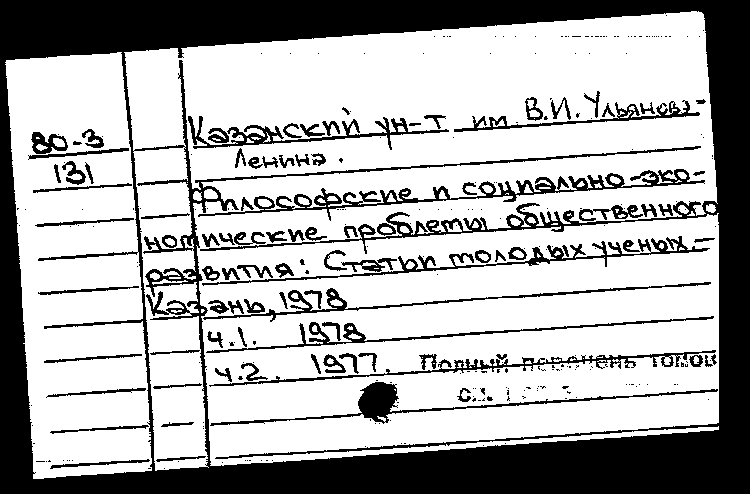 80-3
131
Казанский ун-т им. В.И. Ульянова-
Ленина.
Философские и социально-эко-
номические проблемы общественного
развития: Статьи молодых ученых.-
Казань, 1978
ч.1. 1978
ч.2. 1977. Полный перечень томов
см.